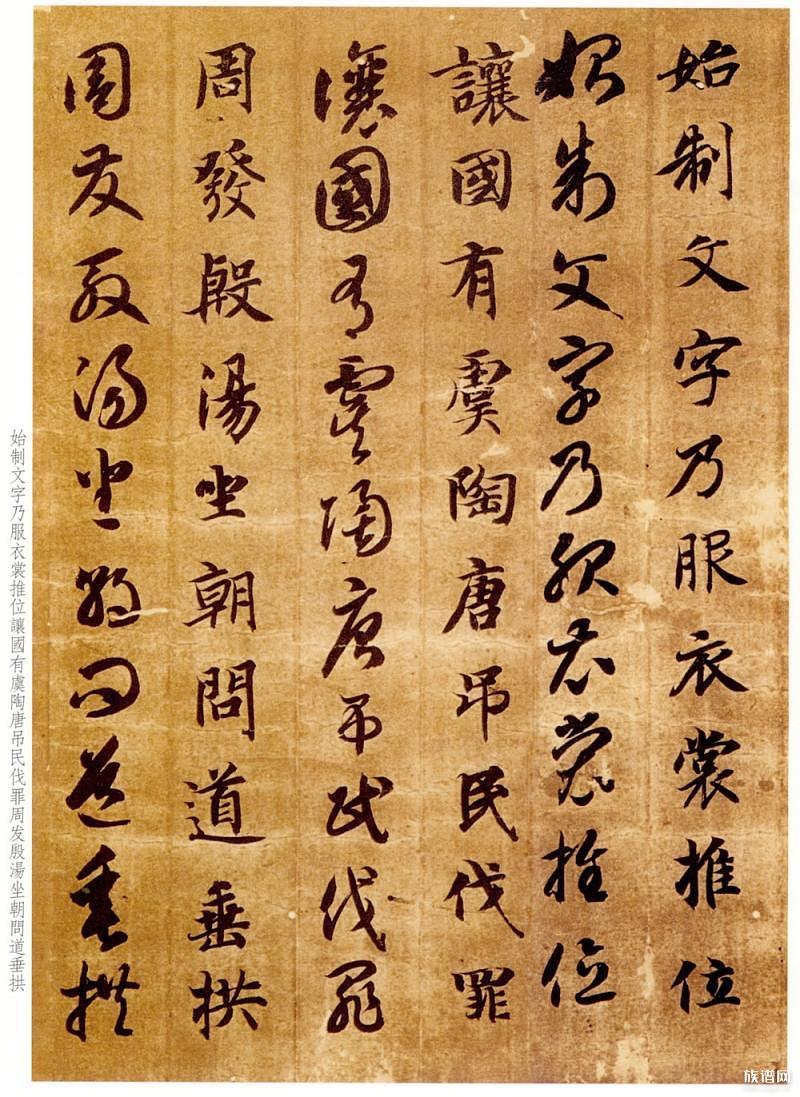 始制文字乃服衣裳推位
始制文字乃服衣裳推位
讓國有虞陶唐吊民伐罪
讓國有虞陶唐吊民伐罪
周發殷湯坐朝問道垂拱
周發殷湯坐朝問道垂拱
始制文字乃服衣裳推位讓國有虞陶唐吊民伐罪周发殷湯坐朝問道垂拱
族谱网